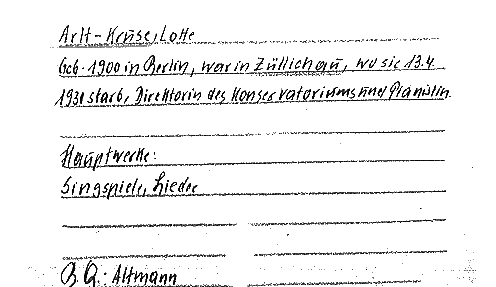 Arlt-Kruse, Lotte
Geb. 1900 in Berlin, war in Züllichau, wo sie 13.4.
1931 starb, Direktorin des Konservatoriums und Pianistin.
Hauptwerke:
Singspiele, Lieder
B.Q.: Altmann